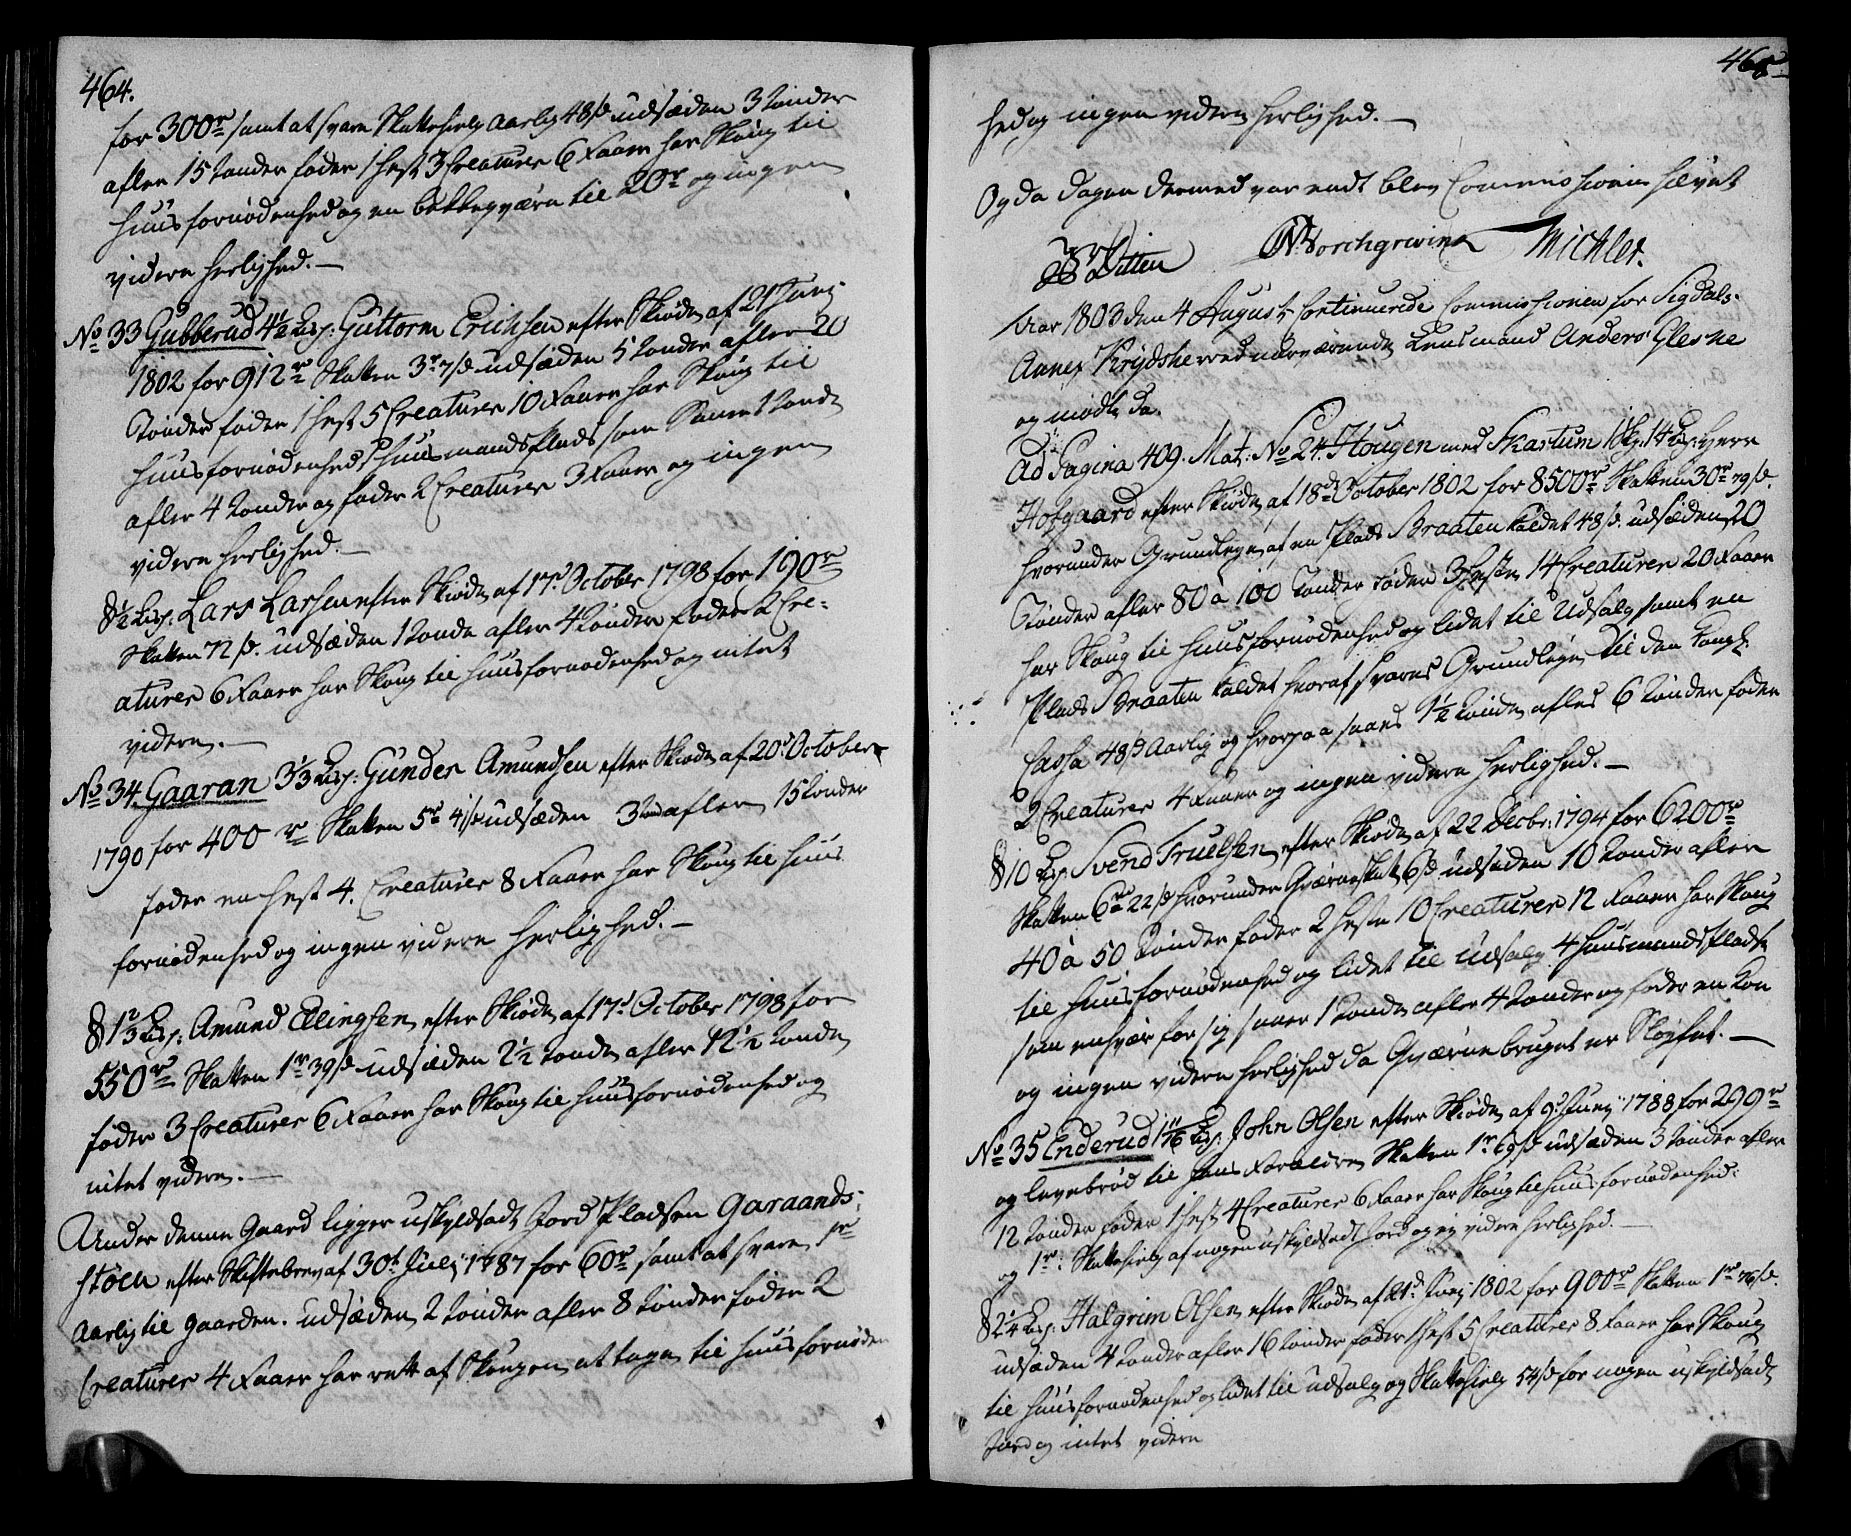 464.
for 300r samt at svare Skattehielp Aarlig 48 s udsæden 3 tønder
afler 15 tønder føder 1 hest 3 Creaturer 6 Faaer har Skoug til
huus fornødenhed og en bekkeqværn til 20r og ingen
videre herlighed. —
No 33 Gubberud 4½ Lisp: Guttorm Erichsen efter Skiøde af 21 Junj
1802 for 912r Skatten 3r 7 s udsæden 5 tønder afler 20
Tønder føder 1 hest 5 Creaturer 10 Faaer har Skoug til
huus fornødenhed huusmands Plads som Saaer 1 tønde
afler 4 tønder og føder 2 Creaturer 3 Faaer og ingen
videre herlighed. —
§ ½ Lisp: Lars Larsen efter Skiøde af 17d October 1798 for 190r
Skatten 72 s. udsæden 1 tønde afler 4 tønder føder 2 Cre-
aturer 6 Faaer har Skoug til huus fornødenhed og intet
videre. —
No 34. Gaaran 3⅓ Lisp: Gunder Amundsen efter Skiøde af 20d October
1790 for 400 r Skatten 5r 41 s udsæden 3 afler 15 tønder
føder en hest 4. Creaturer 8 Faaer har Skoug til huus
fornødenhed og ingen videre herlighed. —
§ 1⅔ Lisp: Amund Ellingsen efter Skiøde af 17d October 1798 for
550r Skatten 1r 39 s udsæden 2½ tønde afler 12½ tønde
føder 3 Creaturer 6 Faaer har Skoug til huus fornødenhed og
intet videre. —
Under denne Gaard ligger uskyldsadt Jord Pladsen Garaands-
støen efter Skiftebrev af 30t Julj 1787 for 60r samt at svare 1r
Aarlig til gaarden. udsæden 2 tønder afler 8 tønder føder 2
Creaturer 4 Faaer har rett af Skougen at tage til huus fornøden
465
hed og ingen videre herlighed. —
Og da dagen dermed var endt blev Commissionen hævet
Ditten Borchgrevink Michlet.
Aar 1803 den 4 August Continuerede Commissionen for Sigdals-
Annex Krydsherred nærværende Lensmand Anders Glesne
og mødte da.
Ad Pagina 409. Mat: No 24. Hougen med Skartum 1 Skp: 14 Lisp: Herr
Hofgaard efter Skiøde af 18d October 1802 for 8500r Skatten 30r 79 s.
hvorunder Grundleje af en Plads Braaten kaldet 48 s. udsæden 20
Tønder afler 80 à 100 tønder føder 3 heste 14 Creaturer 20 Faaer
har Skoug til huus fornødenhed og lidet til Udsalg samt en
Plads Braaten kaldet hvoraf svares Grundleje til den Kongl:
Cassa 48 s Aarlig og hvorpaa saaes 1½ tønde afles 6 tønder føder
2 Creaturer 4 Faaer og ingen videre herlighed. —
§ 10 Lisp Svend Truelsen efter Skiøde af 22 Decbr: 1794 for 6200r
Skatten 6r 22 s hvorunder Qværneskat 6 s udsæden 10 tønder afler
40 à 50 tønder føder 2 heste 10 Creaturer 12 Faaer har Skoug
til huus fornødenhed og lidet til Udsalg 4 huusmands Pladse
som enhver for sig saaer 1 tønde afler 4 tønder og føder en Koe
og ingen videre herlighed da Qværnebruget er Sløyfet. —
No 35 Enderud Lisp: John Olsen efter Skiøde af 9d Junj 1788 for 299r
og levebrød til hans Forældre Skatten 1r udsæden 3 tønder afler
12 tønder føder 1 hest 4 Creaturer 6 Faaer har Skoug til huus fornødenhed:
og 1r: Skattehielp af nogen uskyldsadt Jord og ej videre herlighed. —
§ 2¼ Lisp: Halgrim Olsen efter Skiøde af 21d Junj 1802 for 900r Skatten 1r 76 s.
udsæden 4 tønder afler 16 tønder føder 1 hest 5 Creaturer 8 Faaer har Skoug
til huus fornødenhed og lidet til udsalg og Skattehielp 54 s for nogen uskyldsadt
Jord og intet videre